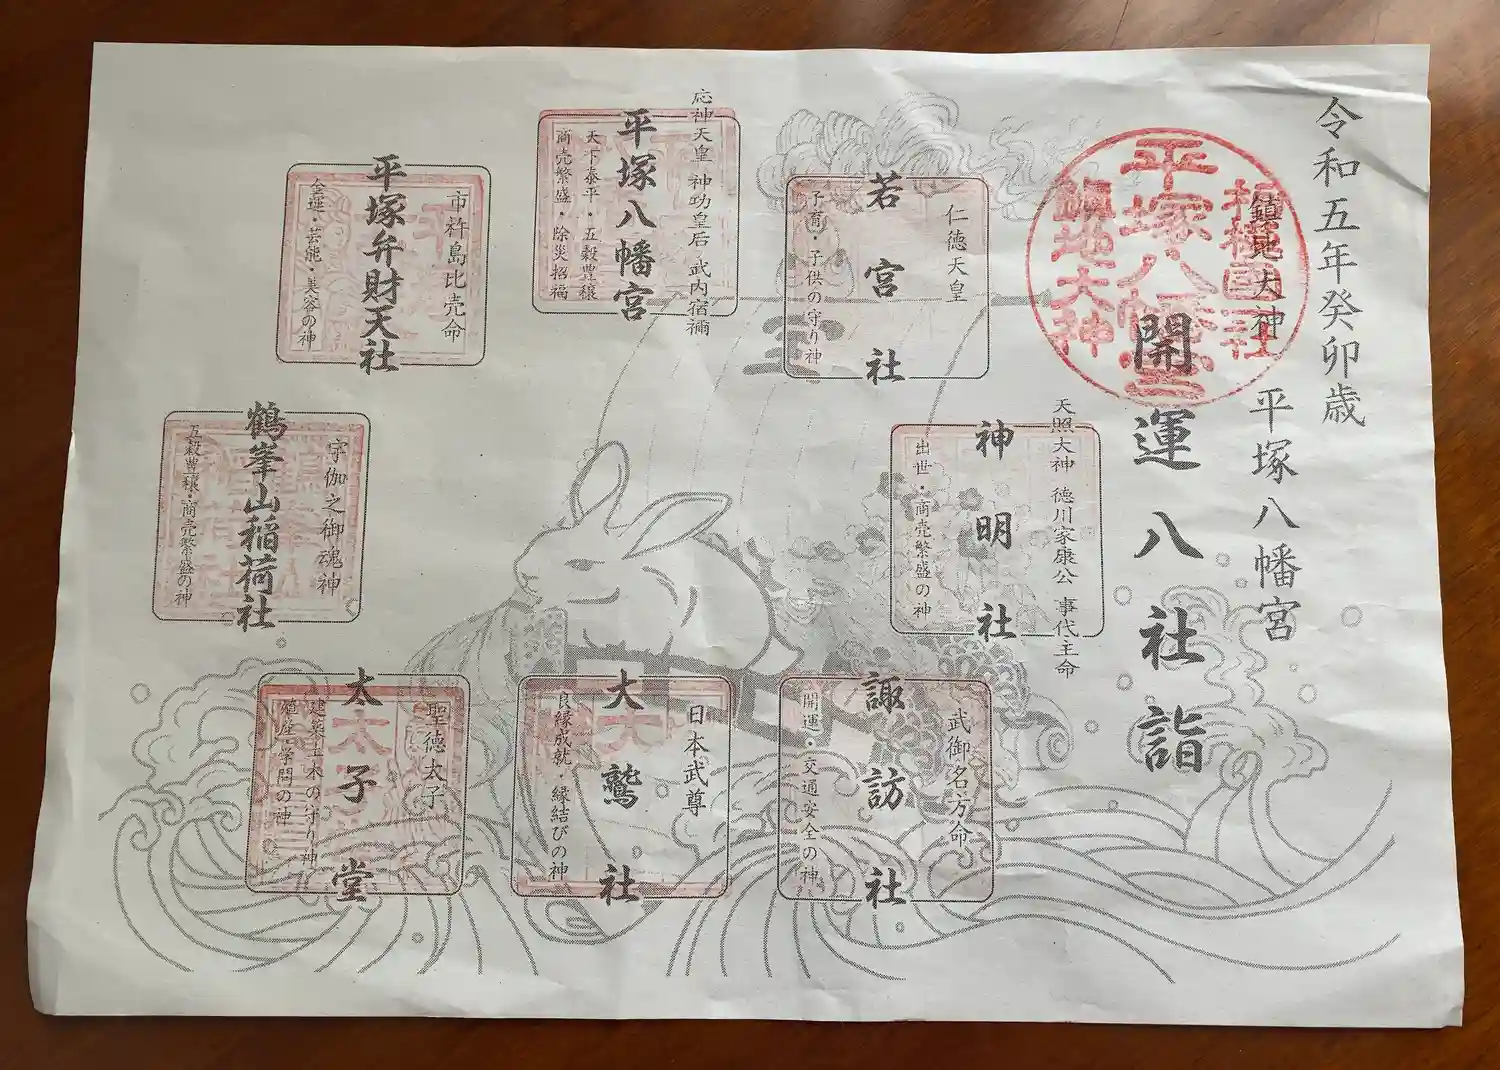 令和五年癸卯歳
平塚八幡宮
鎮地大神
開運八社詣
相模国一社
平塚八幡宮
鎮地大神
仁徳天皇
若宮社
子育・子供の守り神
応神天皇 神功皇后 武内宿禰
平塚八幡宮
天下泰平・五穀豊穣
商売繁盛・除災招福
市杵島比売命
平塚弁財天社
金運・芸能・美容の神
天照大神 徳川家康公 事代主命
神明社
出世・商売繁盛の神
宇伽之御魂神
鶴峯山稲荷社
五穀豊穣・商売繁盛の神
武御名方命
諏訪社
開運・交通安全の神
日本武尊
大鷲社
良縁成就・縁結びの神
聖徳太子
太子堂
建築土木の守り神
殖産・学問の神
宝